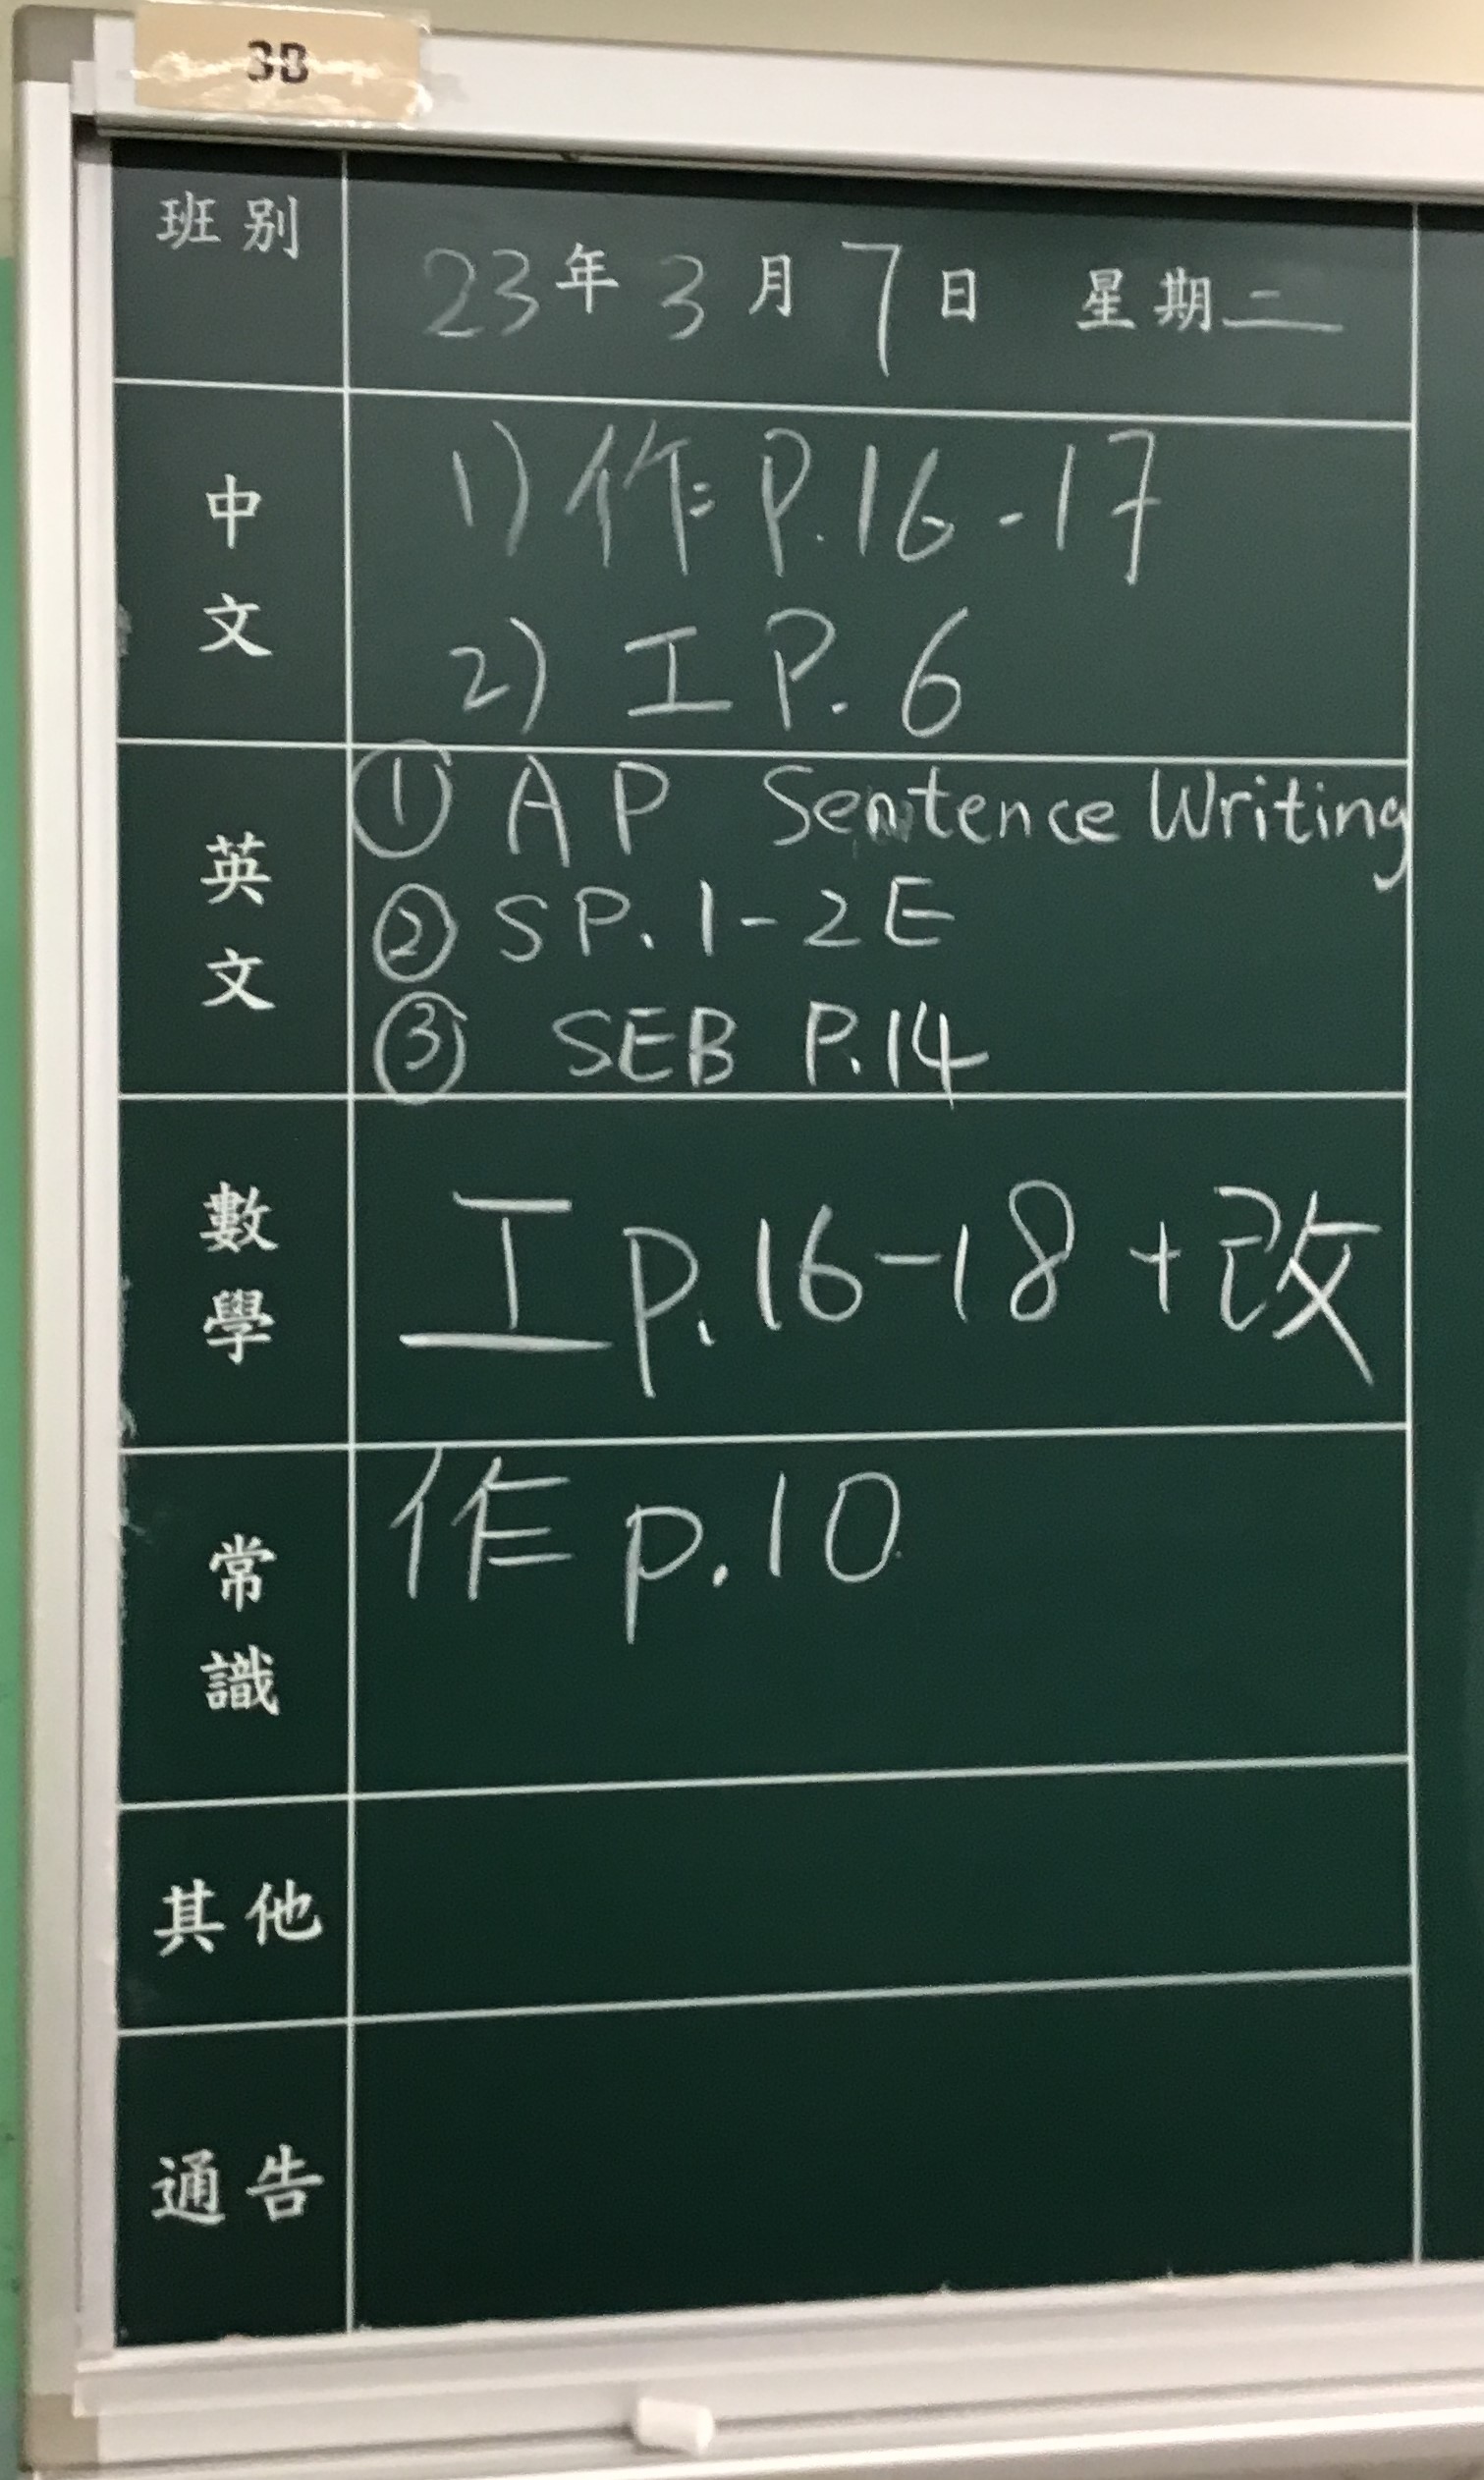 3B
班別
23年3月7日 星期二
中文
1) 作 P.16-17
2) 工 P.6
英文
① AP Sentence Writing
② SP. 1-2E
③ SEB P.14
數學
工 p.16-18 + 改
常識
作 p.10
其他
通告